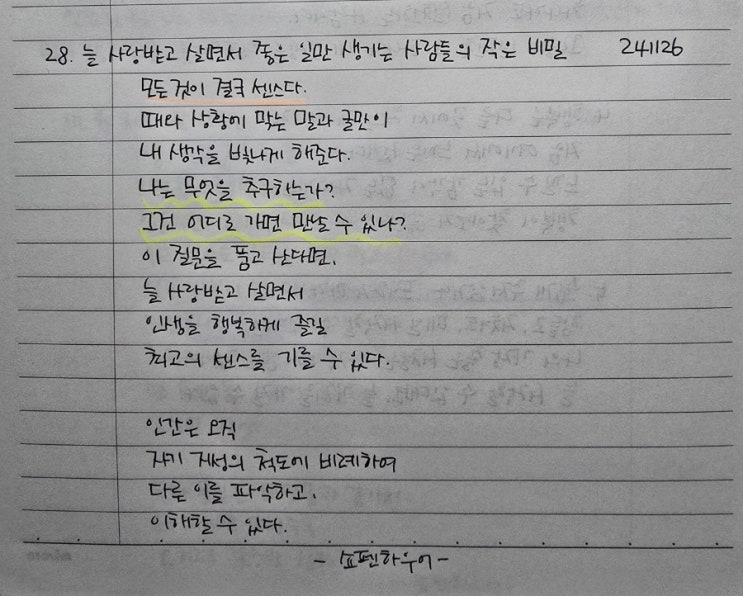 28. 늘 사랑받고 살면서 좋은 일만 생기는 사람들의 작은 비밀 241126
모든 것이 결국 센스다.
때와 상황에 맞는 말과 글만이
내 생각을 빛나게 해준다.
나는 무엇을 추구하는가?
그건 어디로 가면 만날 수 있나?
이 질문을 품고 산다면,
늘 사랑받고 살면서
인생을 행복하게 즐길
최고의 센스를 기를 수 있다.
인간은 오직
자기 지성의 척도에 비례하여
다른 이를 파악하고,
이해할 수 있다.
- 쇼펜하우어 -